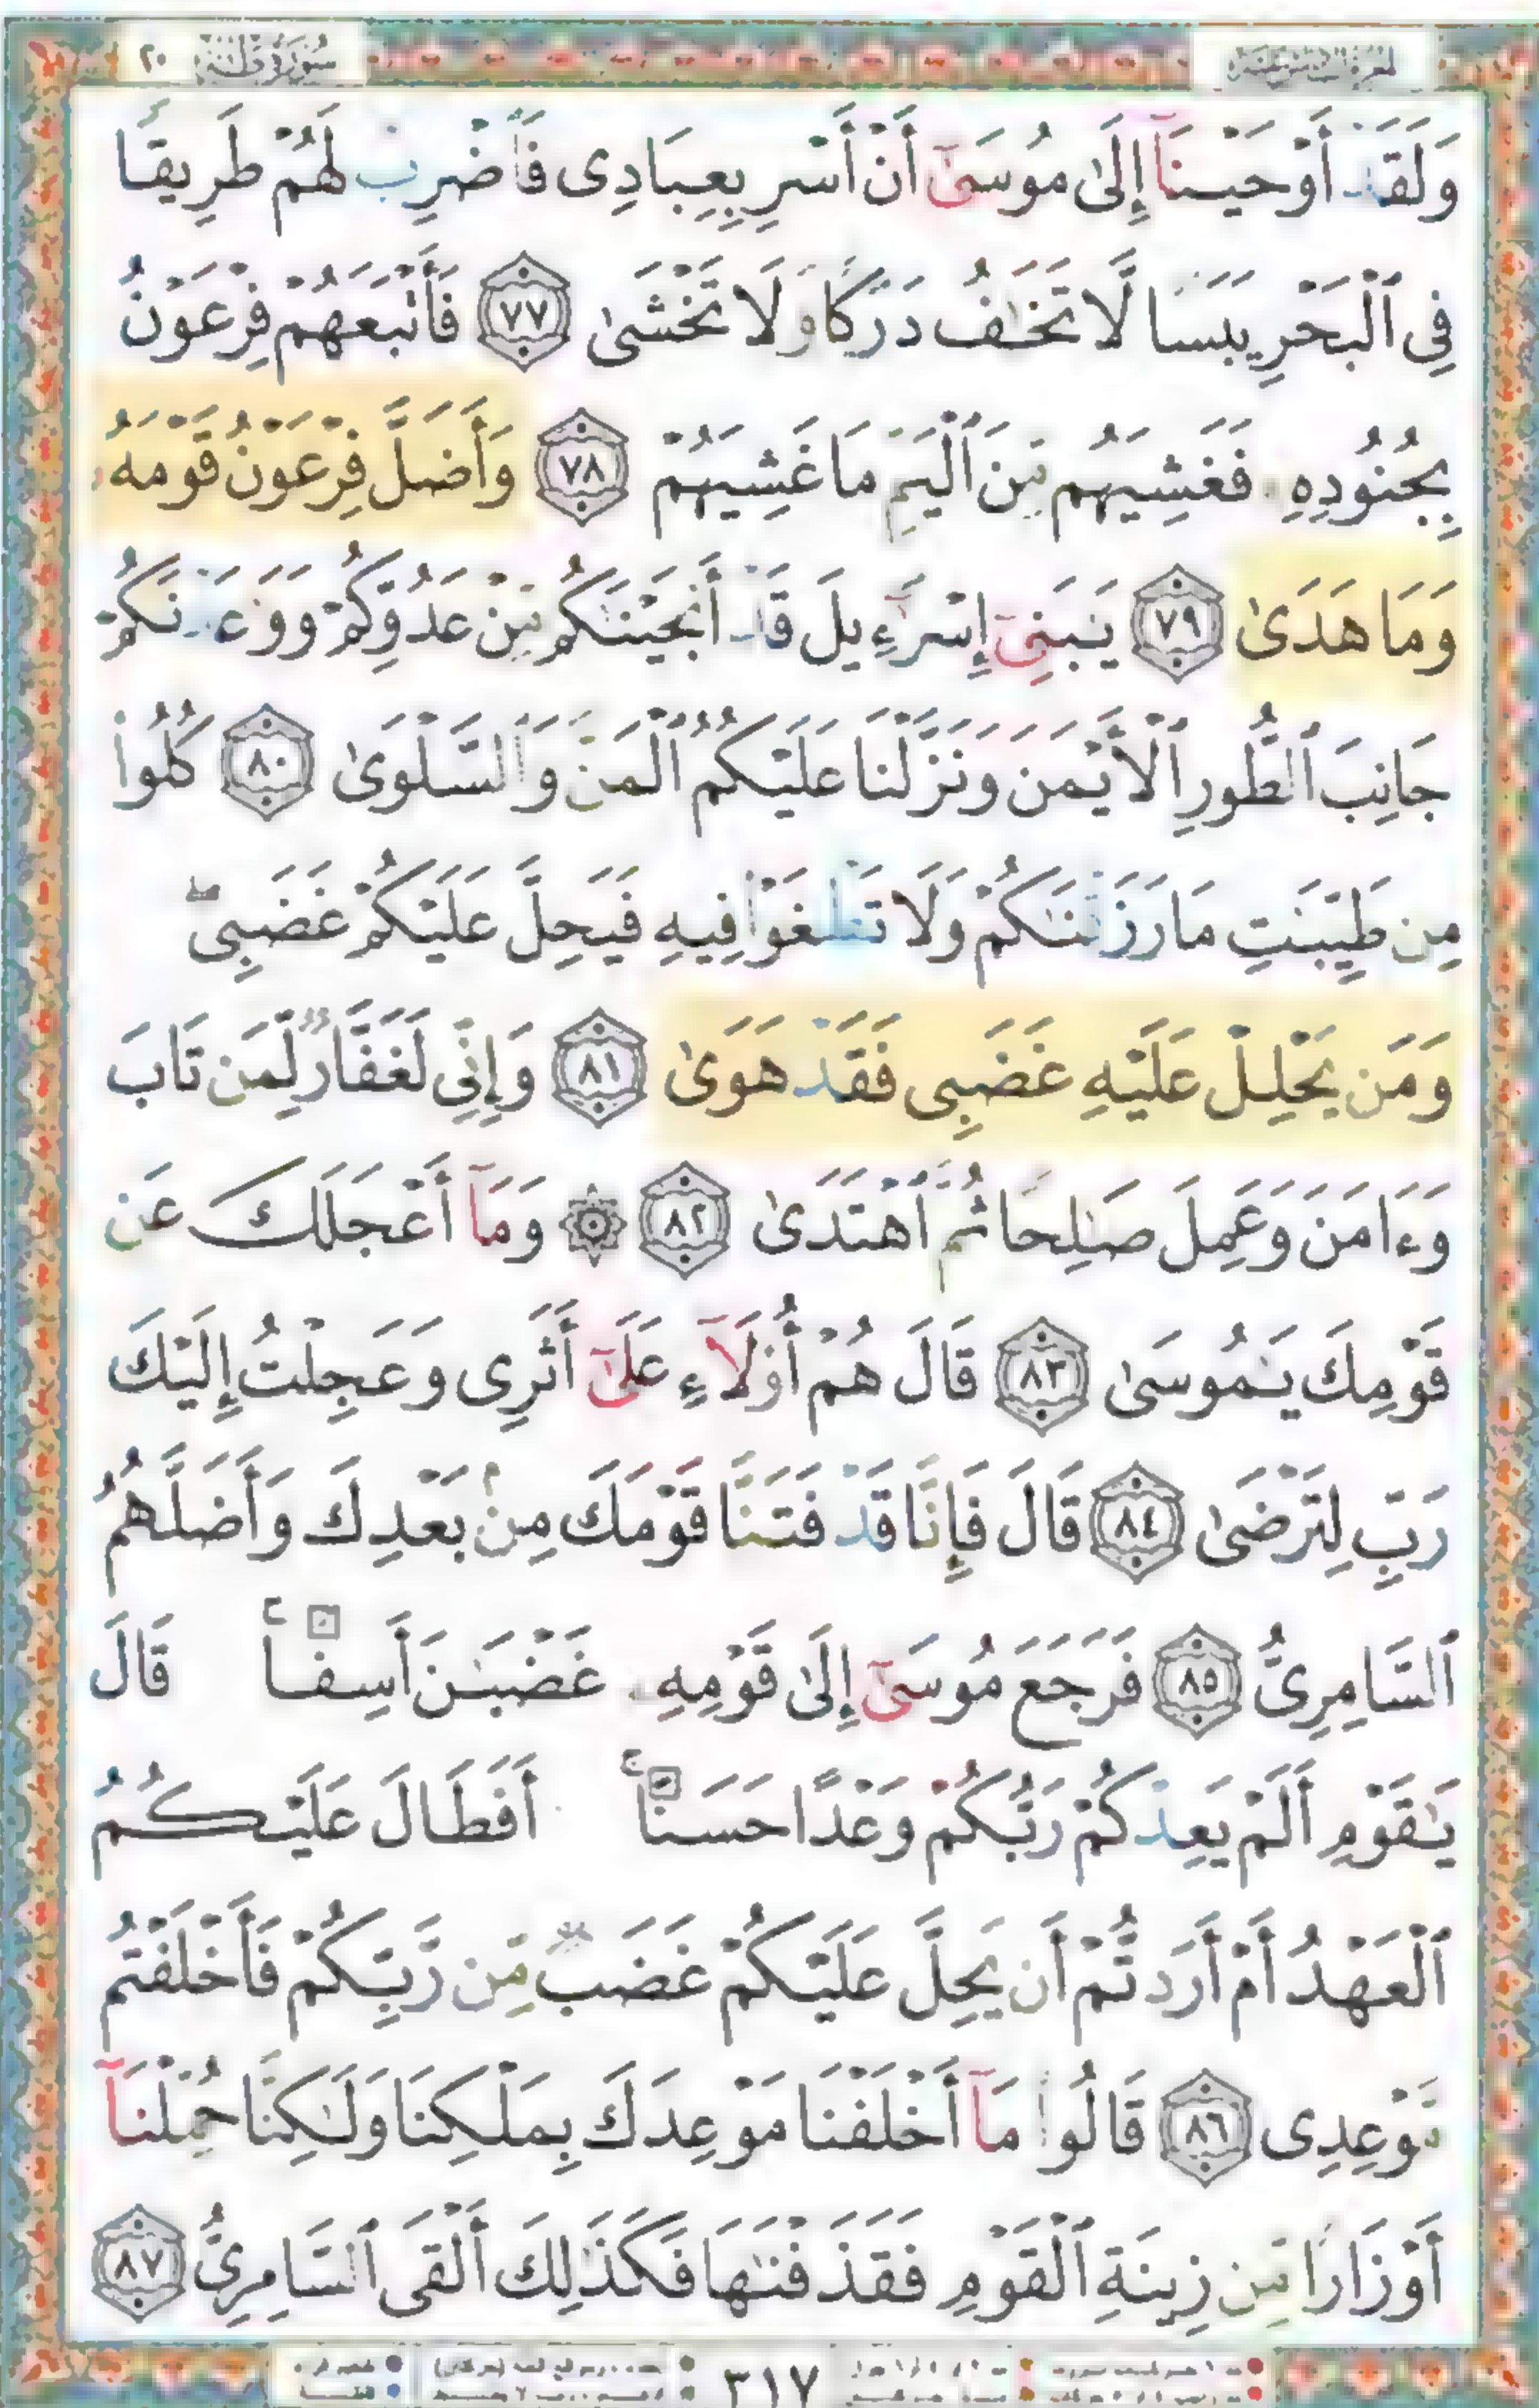 سُورَةُ طه ٢٠
وَلَقَدْ أَوْحَيْنَآ إِلَىٰ مُوسَىٰٓ أَنْ أَسْرِ بِعِبَادِى فَٱضْرِبْ لَهُمْ طَرِيقًا
فِى ٱلْبَحْرِ يَبَسًا لَّا تَخَٰفُ دَرَكًا وَلَا تَخْشَىٰ ٧٧ فَأَتْبَعَهُمْ فِرْعَوْنُ
بِجُنُودِهِۦ فَغَشِيَهُم مِّنَ ٱلْيَمِّ مَا غَشِيَهُمْ ٧٨ وَأَضَلَّ فِرْعَوْنُ قَوْمَهُۥ
وَمَا هَدَىٰ ٧٩ يَٰبَنِىٓ إِسْرَٰٓءِيلَ قَدْ أَنجَيْنَٰكُم مِّنْ عَدُوِّكُمْ وَوَٰعَدْنَٰكُمْ
جَانِبَ ٱلطُّورِ ٱلْأَيْمَنَ وَنَزَّلْنَا عَلَيْكُمُ ٱلْمَنَّ وَٱلسَّلْوَىٰ ٨٠ كُلُوا۟
مِن طَيِّبَٰتِ مَا رَزَقْنَٰكُمْ وَلَا تَطْغَوْا۟ فِيهِ فَيَحِلَّ عَلَيْكُمْ غَضَبِىۖ
وَمَن يَحْلِلْ عَلَيْهِ غَضَبِى فَقَدْ هَوَىٰ ٨١ وَإِنِّى لَغَفَّارٌ لِّمَن تَابَ
وَءَامَنَ وَعَمِلَ صَٰلِحًا ثُمَّ ٱهْتَدَىٰ ٨٢ ۞ وَمَآ أَعْجَلَكَ عَن
قَوْمِكَ يَٰمُوسَىٰ ٨٣ قَالَ هُمْ أُو۟لَآءِ عَلَىٰٓ أَثَرِى وَعَجِلْتُ إِلَيْكَ
رَبِّ لِتَرْضَىٰ ٨٤ قَالَ فَإِنَّا قَدْ فَتَنَّا قَوْمَكَ مِنۢ بَعْدِكَ وَأَضَلَّهُمُ
ٱلسَّامِرِىُّ ٨٥ فَرَجَعَ مُوسَىٰٓ إِلَىٰ قَوْمِهِۦ غَضْبَٰنَ أَسِفًاۚ قَالَ
يَٰقَوْمِ أَلَمْ يَعِدْكُمْ رَبُّكُمْ وَعْدًا حَسَنًاۚ أَفَطَالَ عَلَيْكُمُ
ٱلْعَهْدُ أَمْ أَرَدتُّمْ أَن يَحِلَّ عَلَيْكُمْ غَضَبٌ مِّن رَّبِّكُمْ فَأَخْلَفْتُم
مَّوْعِدِى ٨٦ قَالُوا۟ مَآ أَخْلَفْنَا مَوْعِدَكَ بِمَلْكِنَا وَلَٰكِنَّا حُمِّلْنَآ
أَوْزَارًا مِّن زِينَةِ ٱلْقَوْمِ فَقَذَفْنَٰهَا فَكَذَٰلِكَ أَلْقَى ٱلسَّامِرِىُّ ٨٧
٣١٧